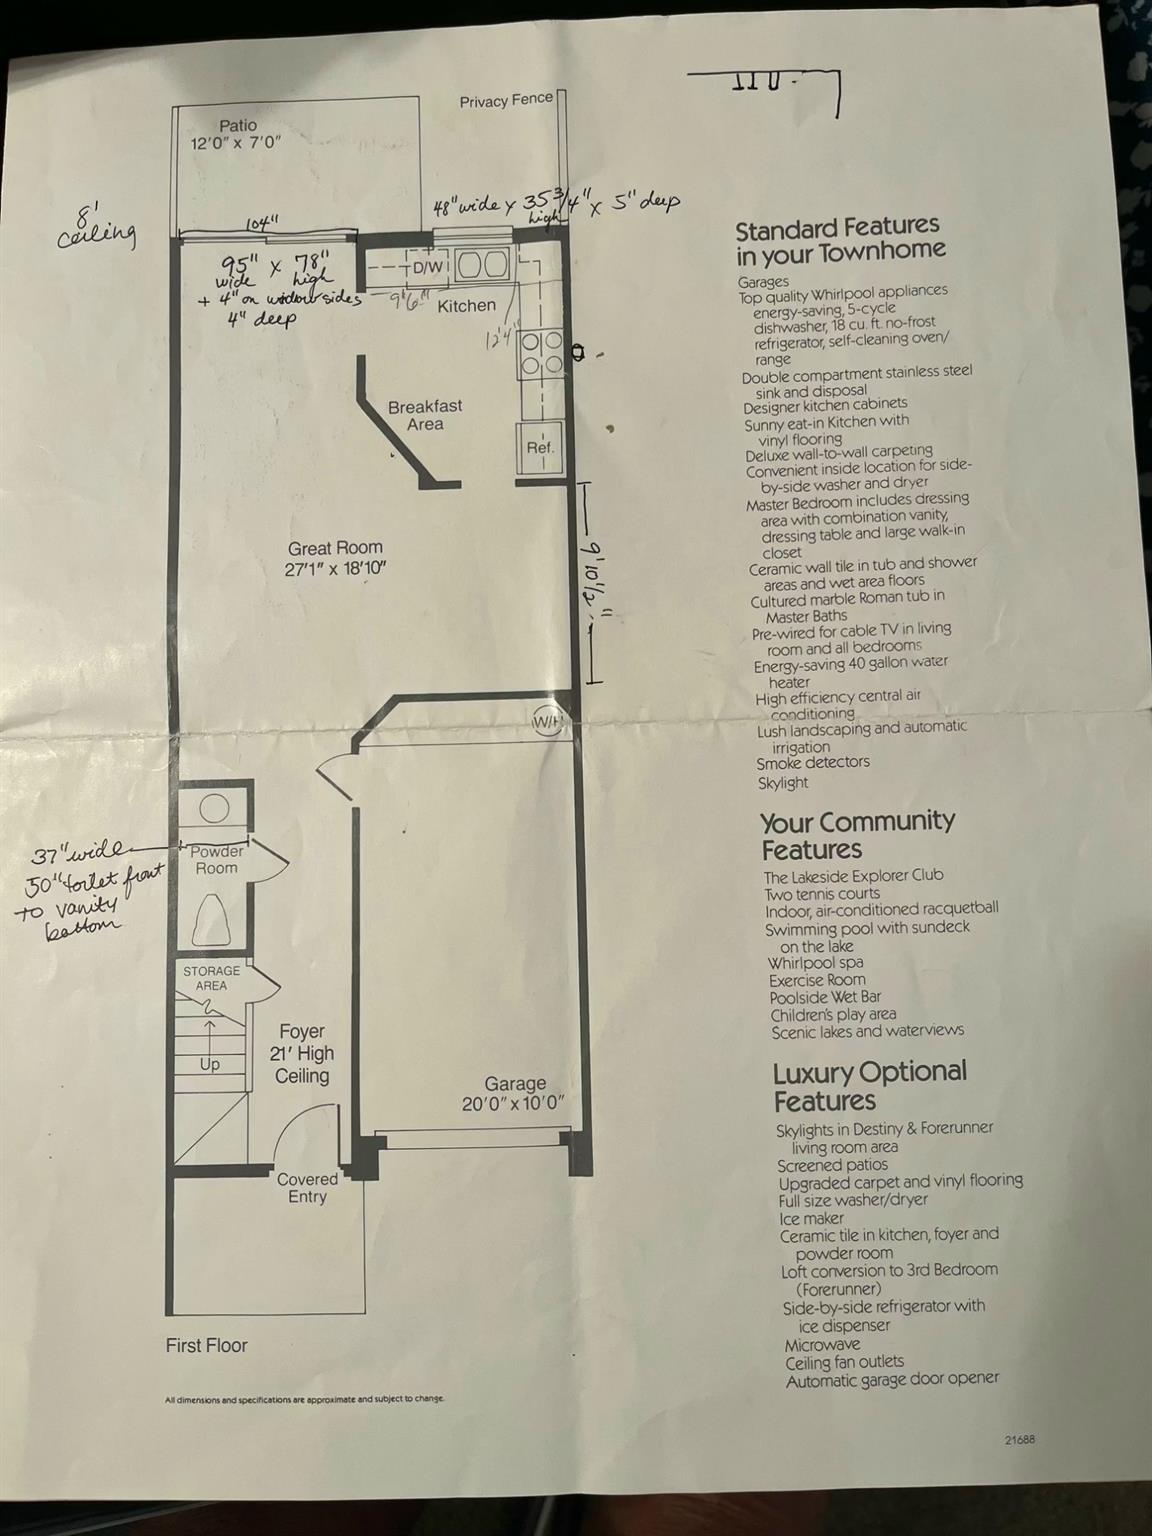 Patio
12'0" x 7'0"
Privacy Fence
8'
ceiling
104"
48" wide x 35 3/4" x 5" deep
high
95" x 78"
wide high
+ 4" on window sides
4" deep
D/W
9'6"
Kitchen
12'4"
Breakfast
Area
Ref.
Great Room
27'1" x 18'10"
9' 10 1/2"
W/H
37" wide
50" toilet front
to vanity
bottom
Powder
Room
STORAGE
AREA
Up
Foyer
21' High
Ceiling
Garage
20'0" x 10'0"
Covered
Entry
First Floor
All dimensions and specifications are approximate and subject to change.
Standard Features
in your Townhome
Garages
Top quality Whirlpool appliances
energy-saving, 5-cycle
dishwasher, 18 cu. ft. no-frost
refrigerator, self-cleaning oven/
range
Double compartment stainless steel
sink and disposal
Designer kitchen cabinets
Sunny eat-in Kitchen with
vinyl flooring
Deluxe wall-to-wall carpeting
Convenient inside location for side-
by-side washer and dryer
Master Bedroom includes dressing
area with combination vanity,
dressing table and large walk-in
closet
Ceramic wall tile in tub and shower
areas and wet area floors
Cultured marble Roman tub in
Master Baths
Pre-wired for cable TV in living
room and all bedrooms
Energy-saving 40 gallon water
heater
High efficiency central air
conditioning
Lush landscaping and automatic
irrigation
Smoke detectors
Skylight
Your Community
Features
The Lakeside Explorer Club
Two tennis courts
Indoor, air-conditioned racquetball
Swimming pool with sundeck
on the lake
Whirlpool spa
Exercise Room
Poolside Wet Bar
Children's play area
Scenic lakes and waterviews
Luxury Optional
Features
Skylights in Destiny & Forerunner
living room area
Screened patios
Upgraded carpet and vinyl flooring
Full size washer/dryer
Ice maker
Ceramic tile in kitchen, foyer and
powder room
Loft conversion to 3rd Bedroom
(Forerunner)
Side-by-side refrigerator with
ice dispenser
Microwave
Ceiling fan outlets
Automatic garage door opener
21688